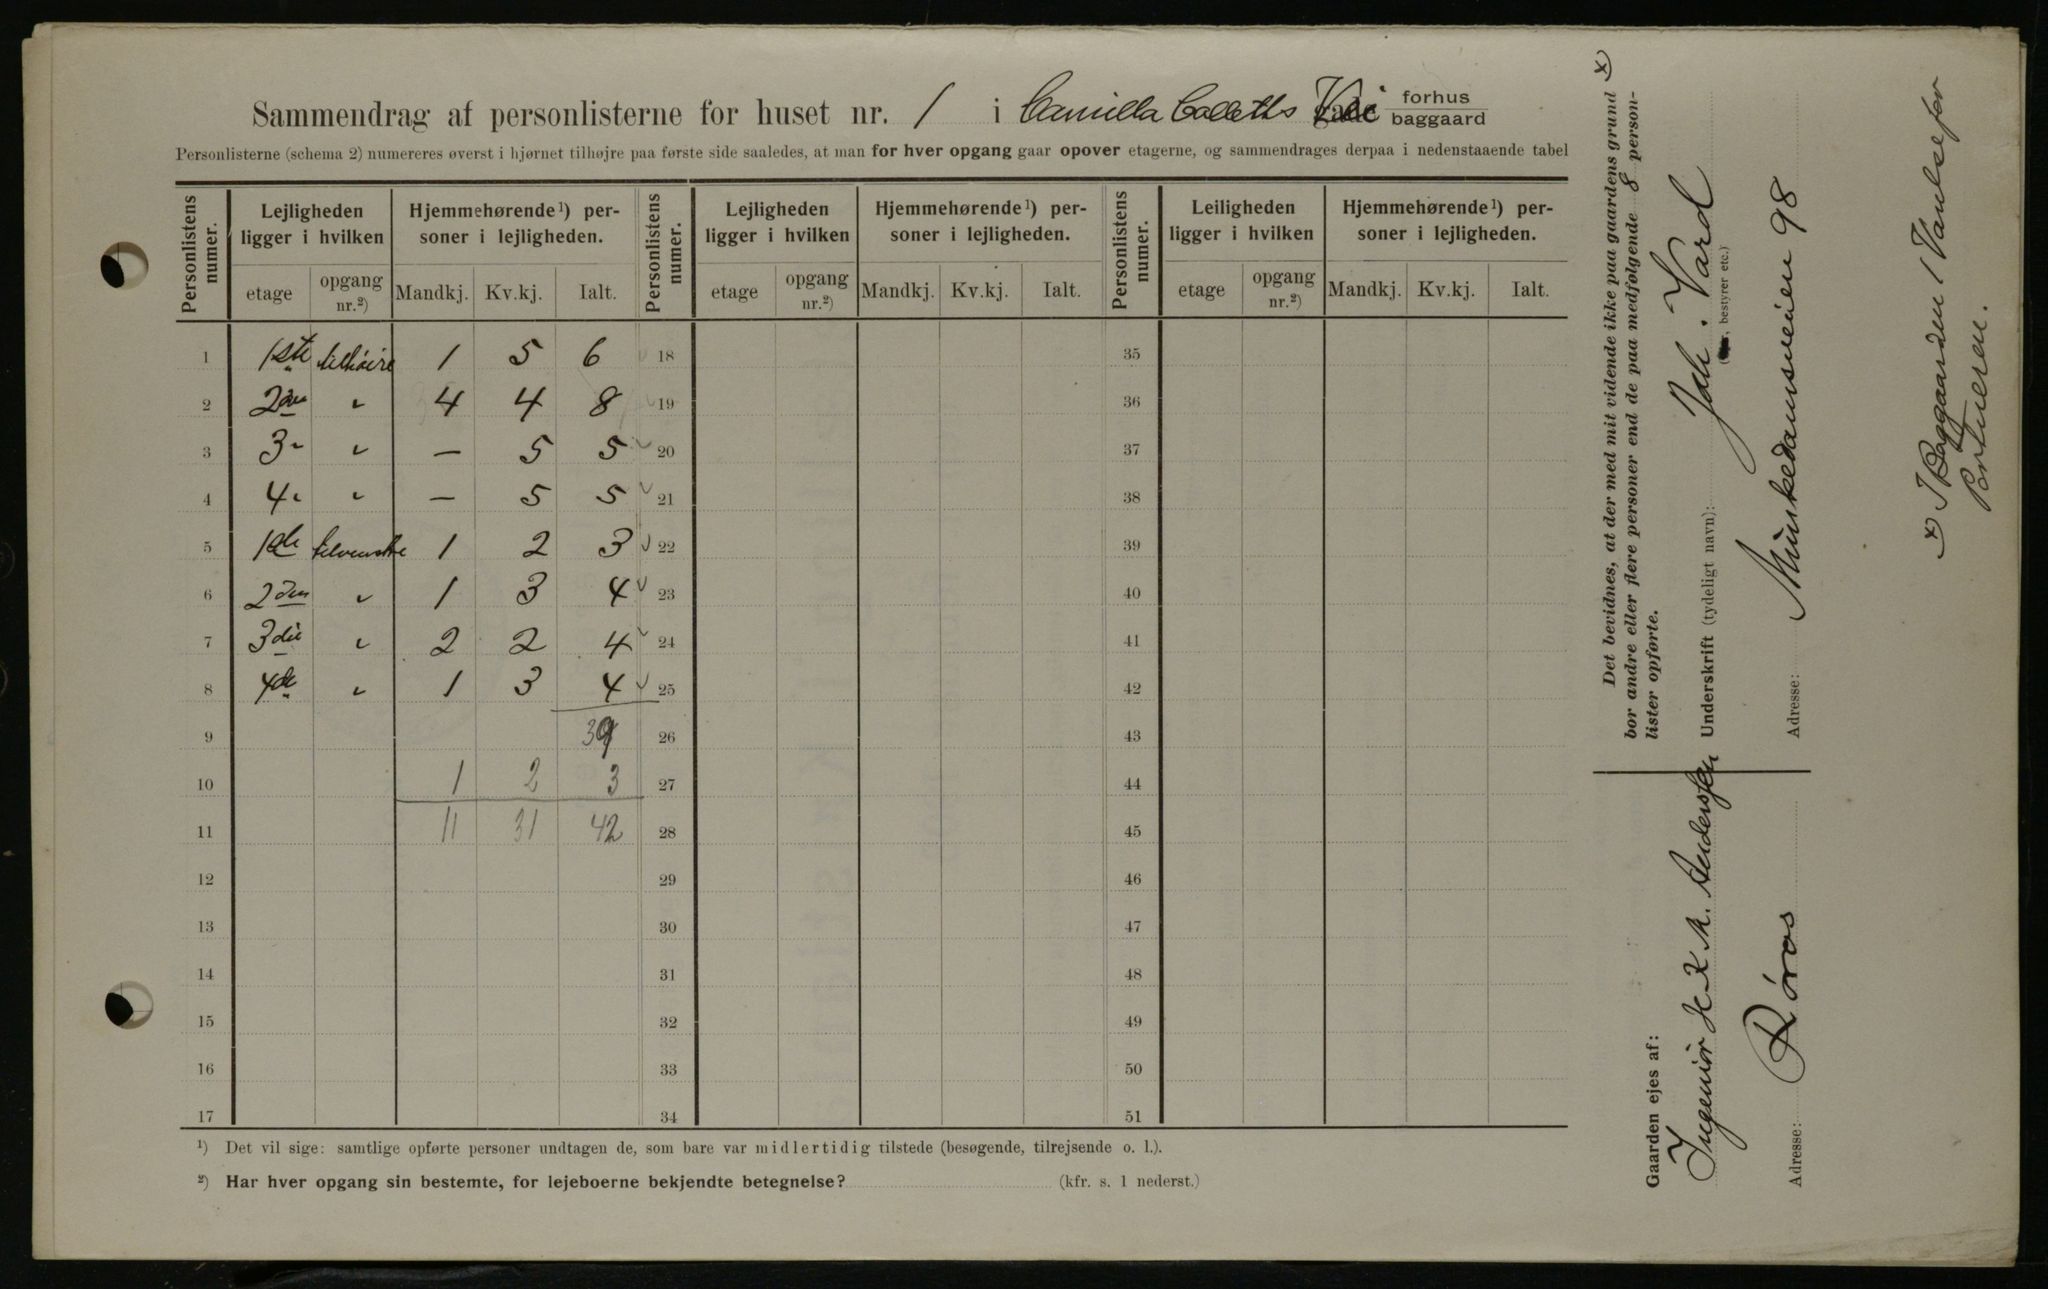 Sammendrag af personlisterne for huset nr. 1 i Camilla Colletts Vei forhus baggaard
Personlisterne (schema 2) numereres øverst i hjørnet tilhøjre paa første side saaledes, at man for hver opgang gaar opover etagerne, og sammendrages derpaa i nedenstaaende tabel
Personlistens numer. Lejligheden ligger i hvilken Hjemmehørende¹) personer i lejligheden. Personlistens numer. Lejligheden ligger i hvilken Hjemmehørende¹) personer i lejligheden. Personlistens numer. Leiligheden ligger i hvilken Hjemmehørende¹) personer i lejligheden.
etage opgang nr.²) Mandkj. Kv.kj. Ialt. etage opgang nr.²) Mandkj. Kv.kj. Ialt. etage opgang nr.²) Mandkj. Kv.kj. Ialt.
1 1ste tilhøire 1 5 6 18 35
2 2den " 4 4 8 19 36
3 3" " — 5 5 20 37
4 4" " — 5 5 21 38
5 1ste tilvenstre 1 2 3 22 39
6 2den " 1 3 4 23 40
7 3die " 2 2 4 24 41
8 4de " 1 3 4 25 42
9 39 26 43
10 1 2 3 27 44
11 11 31 42 28 45
12 29 46
13 30 47
14 31 48
15 32 49
16 33 50
17 34 51
¹) Det vil sige: samtlige opførte personer undtagen de, som bare var midlertidig tilstede (besøgende, tilrejsende o. l.).
²) Har hver opgang sin bestemte, for lejeboerne bekjendte betegnelse? (kfr. s. 1 nederst.)
Det bevidnes, at der med mit vidende ikke paa gaardens grund x)
bor andre eller flere personer end de paa medfølgende 8 person-
lister opførte.
Underskrift (tydeligt navn): Joh. Vard
bestyrer etc.)
Adresse: Munkedamsveien 98
Gaarden ejes af:
Ingeniør H. K. M. Anderssen
Adresse: Røros
x) I Baggaarden 1 Værelse for
Portieren.